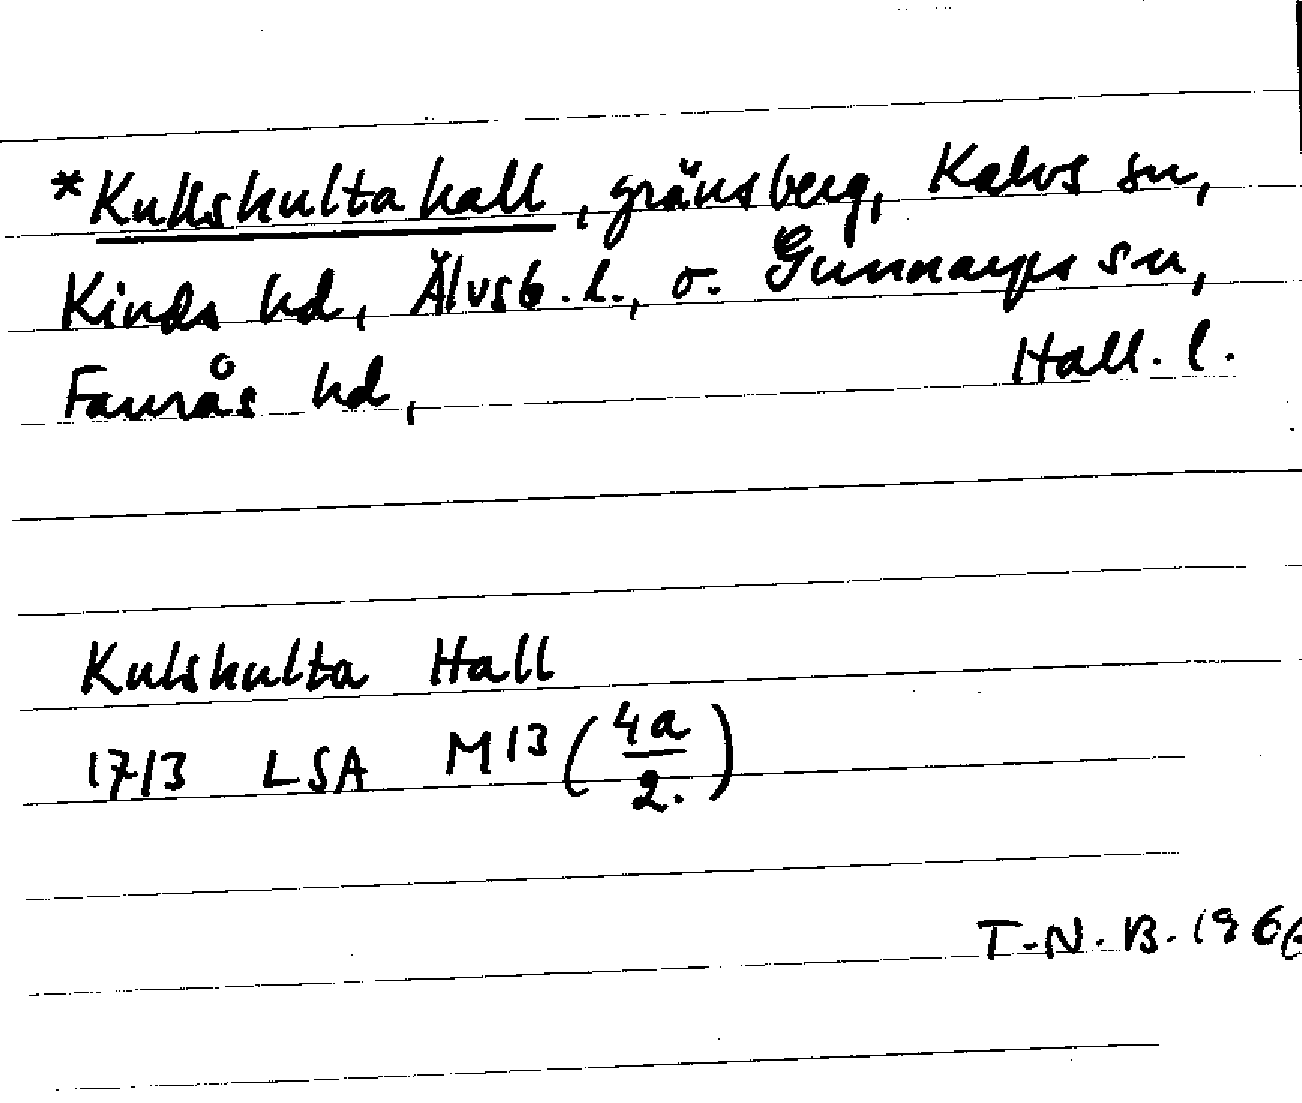 *Kullshulta hall, gränsberg, Kalvs sn,
Kinds hd, Älvsb. l., o. Gunnarps sn,
Faurås hd, Hall. l.
Kulshulta Hall
1713 LSA M13 (4a/2.)
T.N.B. 1966